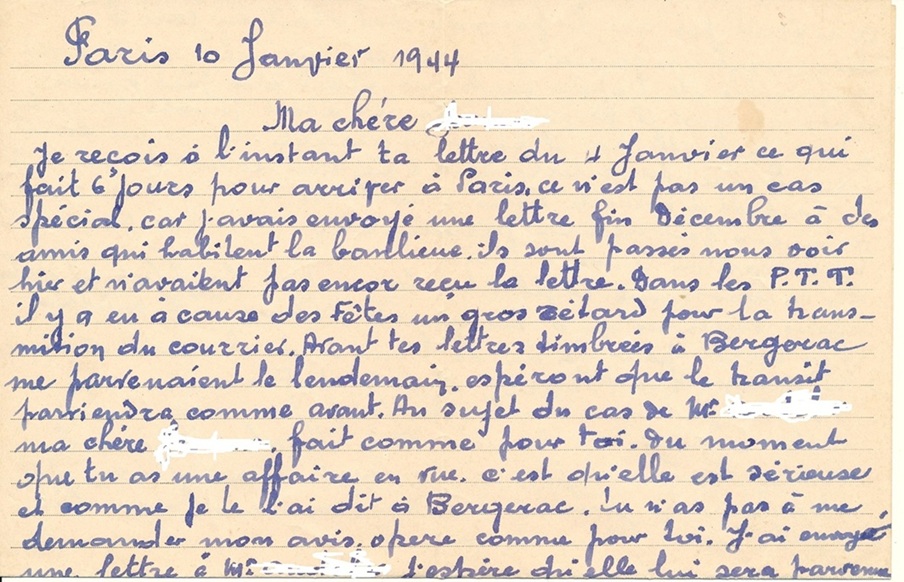 Paris 10 Janvier 1944
Ma chére
Je reçois à l'instant ta lettre du 4 Janvier ce qui
fait 6 Jours pour arriver à Paris, ce n'est pas un cas
spécial, car j'avais envoyé une lettre fin Décembre à des
amis qui habitent la banlieue. ils sont passés nous voir
hier et n'avaitent pas encor reçu la lettre. Dans les P.T.T.
il y a eu à cause des Fêtes un gros retard pour la trans-
mition du courrier. Avant tes lettres timbrées à Bergerac
me parvenaient le lendemain, espéront que le transit
parviendra comme avant. Au sujet du cas de Mr.
ma chère , fait comme pour toi. Du moment
que tu as une affaire en vue. c'est qu'elle est sérieuse
et comme je te l'ai dit à Bergerac. tu n'as pas à me
demander mon avis. opere comme pour toi. J'ai envoyé
une lettre à Mr. j'espère qu'elle lui sera parvenue